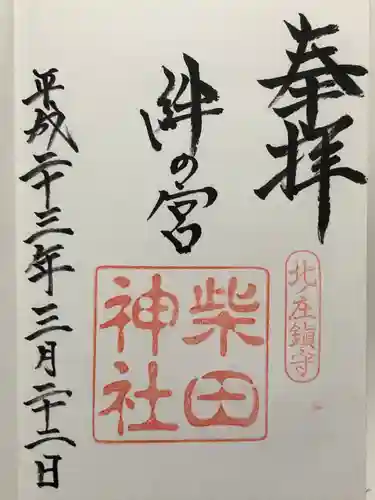 奉拝
北ノ庄鎮守
絆の宮
柴田
神社
平成二十三年三月二十二日